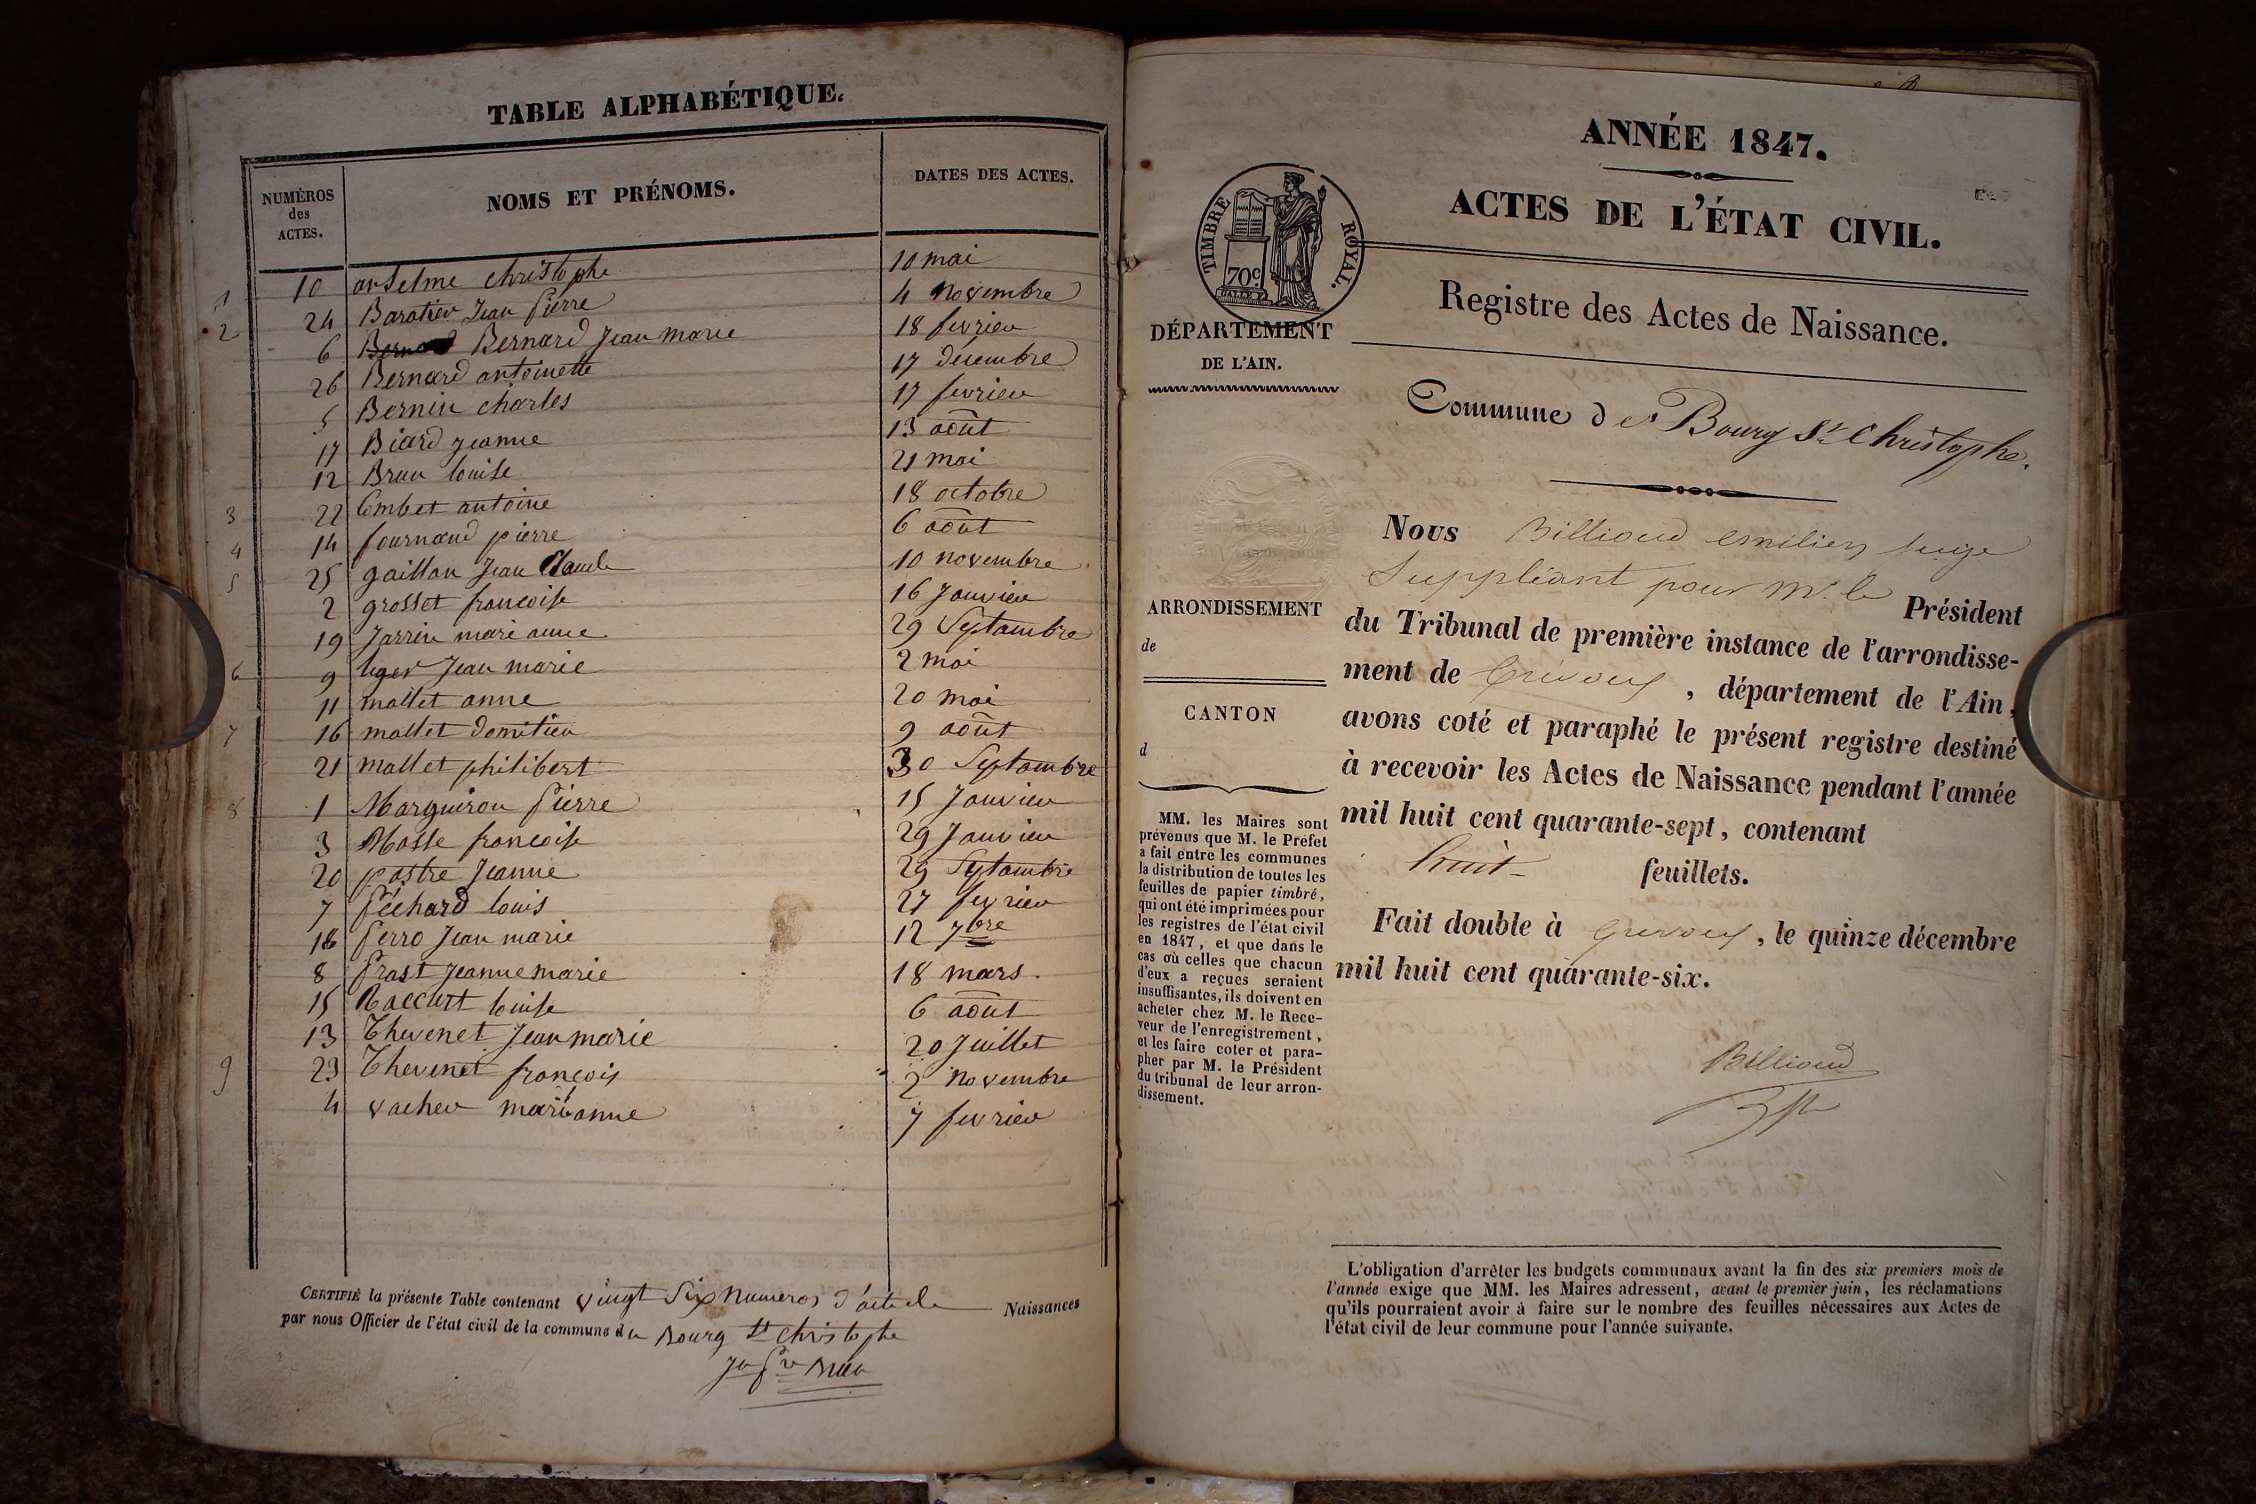 TABLE ALPHABÉTIQUE.
NUMÉROS
des
ACTES.
NOMS ET PRÉNOMS.
DATES DES ACTES.
1 10 anselme christophe 10 mai
2 24 Baratier Jean Pierre 4 Novembre
6 Bernard Bernard Jean marie 18 fevrier
26 Bernard antoinette 17 décembre
5 Bernin charles 17 fevrier
17 Biard jeanne 13 août
12 Brun louise 21 mai
3 22 Combet antoine 18 octobre
4 14 fournand pierre 6 août
5 25 gaillon Jean Claude 10 novembre
2 grosset francoise 16 Janvier
19 Jarrin marie anne 29 Septambre
6 9 liger Jean marie 2 mai
11 mallet anne 20 mai
7 16 mallet domitien 9 août
21 mallet philibert 30 Septambre
8 1 Marguiron Pierre 15 Janvier
3 Masse francoise 29 Janvier
20 pastre Jeanne 29 Septambre
7 Péchard louis 27 fevrier
18 Perro Jean marie 12 7bre
8 Prast Jeanne marie 18 mars.
15 Raccurt louise 6 août
13 Thevenet Jean marie 20 Juillet
9 23 Thevenet françois 2 Novembre
4 vacher marianne 7 fevrier
CERTIFIÉ la présente Table contenant vingt Six Numeros d'article Naissances
par nous Officier de l'état civil de la commune du Bourg St christophe
ANNÉE 1847.
ACTES DE L'ÉTAT CIVIL.
TIMBRE ROYAL.
70c
Registre des Actes de Naissance.
DÉPARTEMENT
DE L'AIN.
Commune de Bourg St Christophe.
Nous Billioud emilien juge
Suppléant pour Mr. le Président
ARRONDISSEMENT
de
CANTON
d
du Tribunal de première instance de l'arrondisse-
ment de Trévoux, département de l'Ain,
avons coté et paraphé le présent registre destiné
à recevoir les Actes de Naissance pendant l'année
mil huit cent quarante-sept, contenant
huit feuillets.
Fait double à Trevoux, le quinze décembre
mil huit cent quarante-six.
Billioud
MM. les Maires sont
prévenus que M. le Préfet
a fait entre les communes
la distribution de toutes les
feuilles de papier timbré,
qui ont été imprimées pour
les registres de l'état civil
en 1847, et que dans le
cas où celles que chacun
d'eux a reçues seraient
insuffisantes, ils doivent en
acheter chez M. le Rece-
veur de l'enregistrement,
et les faire coter et para-
pher par M. le Président
du tribunal de leur arron-
dissement.
L'obligation d'arrêter les budgets communaux avant la fin des six premiers mois de
l'année exige que MM. les Maires adressent, avant le premier juin, les réclamations
qu'ils pourraient avoir à faire sur le nombre des feuilles nécessaires aux Actes de
l'état civil de leur commune pour l'année suivante.